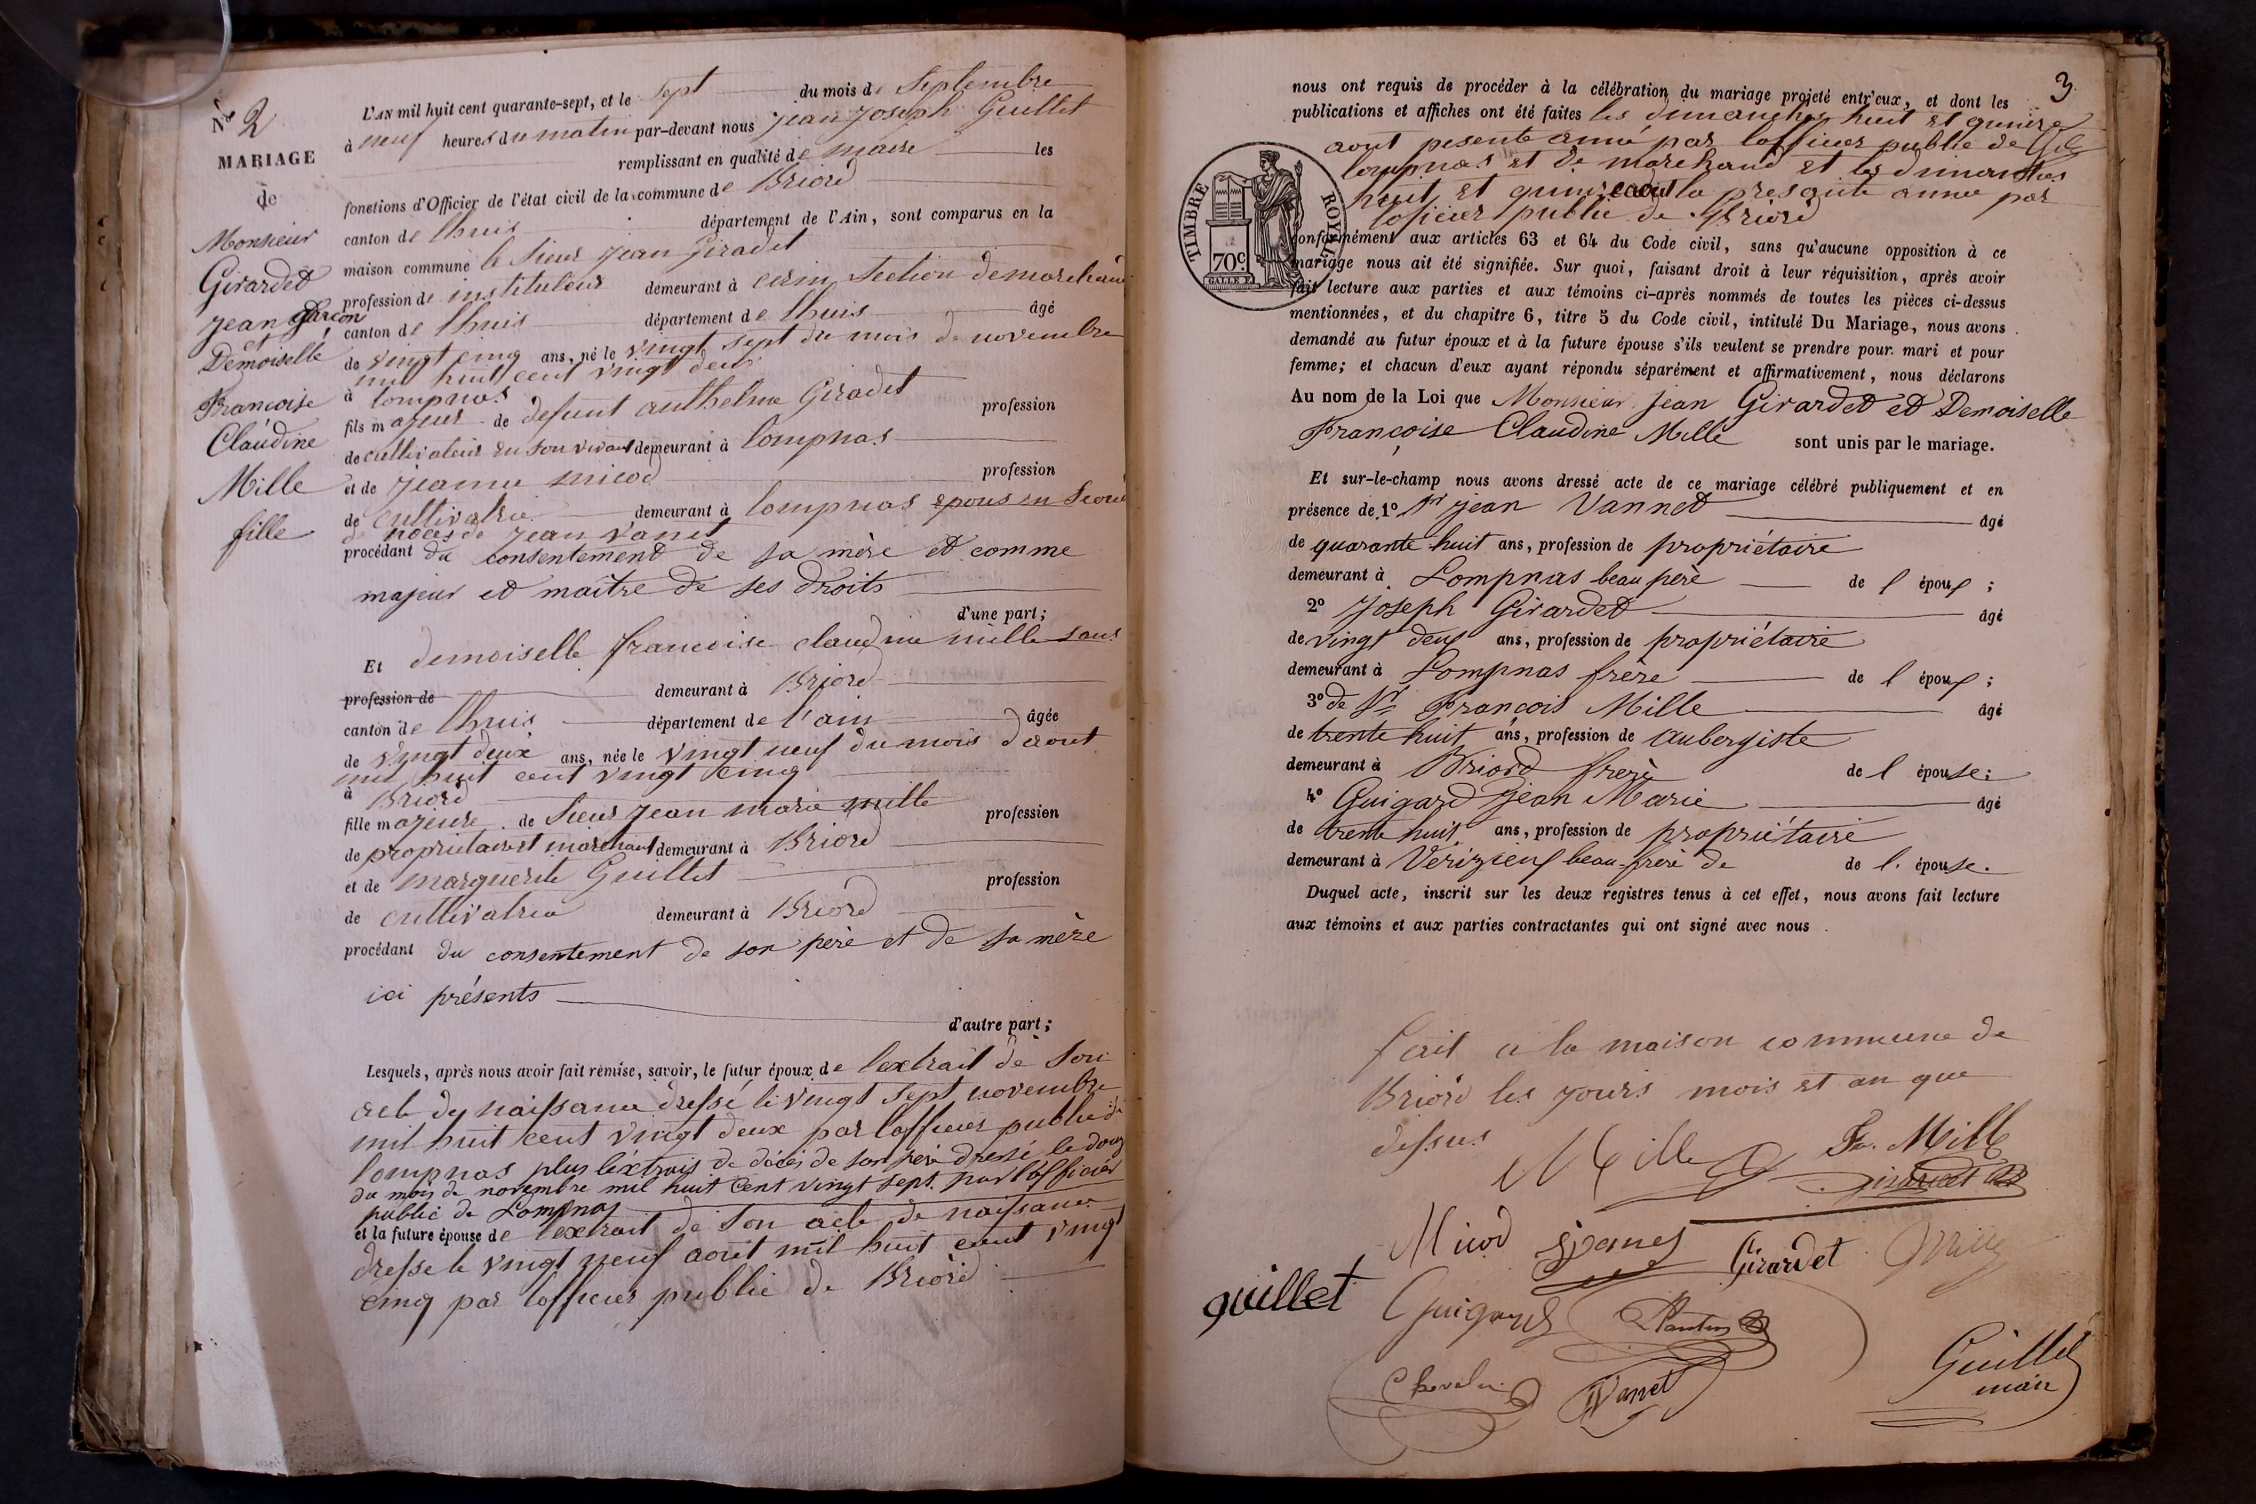 N° 2
MARIAGE
de
Monsieur
Girardet
Jean Garçon
et
Demoiselle
Francoise
Claudine
Mille
fille
L'AN mil huit cent quarante-sept, et le sept du mois de Septembre
à neuf heures du matin par-devant nous jean joseph Guillet
remplissant en qualité de maire les
fonctions d'Officier de l'état civil de la commune de Briord
canton de lhuis département de l'Ain, sont comparus en la
maison commune le Sieur jean Giradet
profession de instituteur demeurant à cerin Section de marchand
canton de lhuis département de lhuis âgé
de vingt cinq ans, né le vingt sept du mois de novembre
mil huit cent vingt deux
à lompnas
fils majeur de defunt anthelme Giradet profession
de cultivateur en son vivant demeurant à lompnas
et de jeanne micod profession
de cultivatrice demeurant à lompnas epous en Second
de noces de jean Vanet
procédant du consentement de sa mère et comme
majeur et maître de ses droits
d'une part;
Et demoiselle francoise claudine mille sans
profession de demeurant à Briord
canton de lhuis département de l'ain âgée
de vingt deux ans, née le vingt neuf du mois d'aout
mil huit cent vingt cinq
à Briord
fille majeure de Sieur jean marie mille profession
de propriétaire et marchand demeurant à Briord
et de marguerite Guillet profession
de cultivatrice demeurant à Briord
procédant du consentement de son père et de sa mère
ici présents
d'autre part;
Lesquels, après nous avoir fait remise, savoir, le futur époux de l'extrait de son
acte de naissance dressé le vingt sept novembre
mil huit cent vingt deux par l'officier public de
lompnas plus l'extrait de décès de son père dressé le douze
du mois de novembre mil huit cent vingt sept par l'officier
public de Lompnas
et la future épouse de l'extrait de son acte de naissance
dresse le vingt neuf aout mil huit cent vingt
cinq par l'officier public de Briord
3
nous ont requis de procéder à la célébration du mariage projeté entr'eux, et dont les
publications et affiches ont été faites les dimanches huit et quinze
aout presente année par l'officier public de
lompnas et de marchand et les dimanches
huit et quinze aout la presente annee par
l'officier public de Briord
TIMBRE ROYAL
70c.
conformément aux articles 63 et 64 du Code civil, sans qu'aucune opposition à ce
mariage nous ait été signifiée. Sur quoi, faisant droit à leur réquisition, après avoir
fait lecture aux parties et aux témoins ci-après nommés de toutes les pièces ci-dessus
mentionnées, et du chapitre 6, titre 5 du Code civil, intitulé Du Mariage, nous avons
demandé au futur époux et à la future épouse s'ils veulent se prendre pour mari et pour
femme; et chacun d'eux ayant répondu séparément et affirmativement, nous déclarons
Au nom de la Loi que Monsieur jean Girardet et Demoiselle
Françoise Claudine Mille sont unis par le mariage.
Et sur-le-champ nous avons dressé acte de ce mariage célébré publiquement et en
présence de 1° Sr jean Vannet âgé
de quarante huit ans, profession de propriétaire
demeurant à Lompnas beau père de l époux ;
2° Joseph Girardet âgé
de vingt deux ans, profession de propriétaire
demeurant à Lompnas frère de l époux ;
3° de Sr François Mille âgé
de trente huit ans, profession de aubergiste
demeurant à Briord frère de l épouse;
4° Guigard Jean Marie âgé
de trente huit ans, profession de propriétaire
demeurant à Verizieux beau-frère de de l. épouse.
Duquel acte, inscrit sur les deux registres tenus à cet effet, nous avons fait lecture
aux témoins et aux parties contractantes qui ont signé avec nous .
fait a la maison commune de
Briord les jours mois et an que
dessus
Mille Fse. Mille
Girardet
Micod Vanet Girardet
guillet Guigard
Vanet Guillet
maire